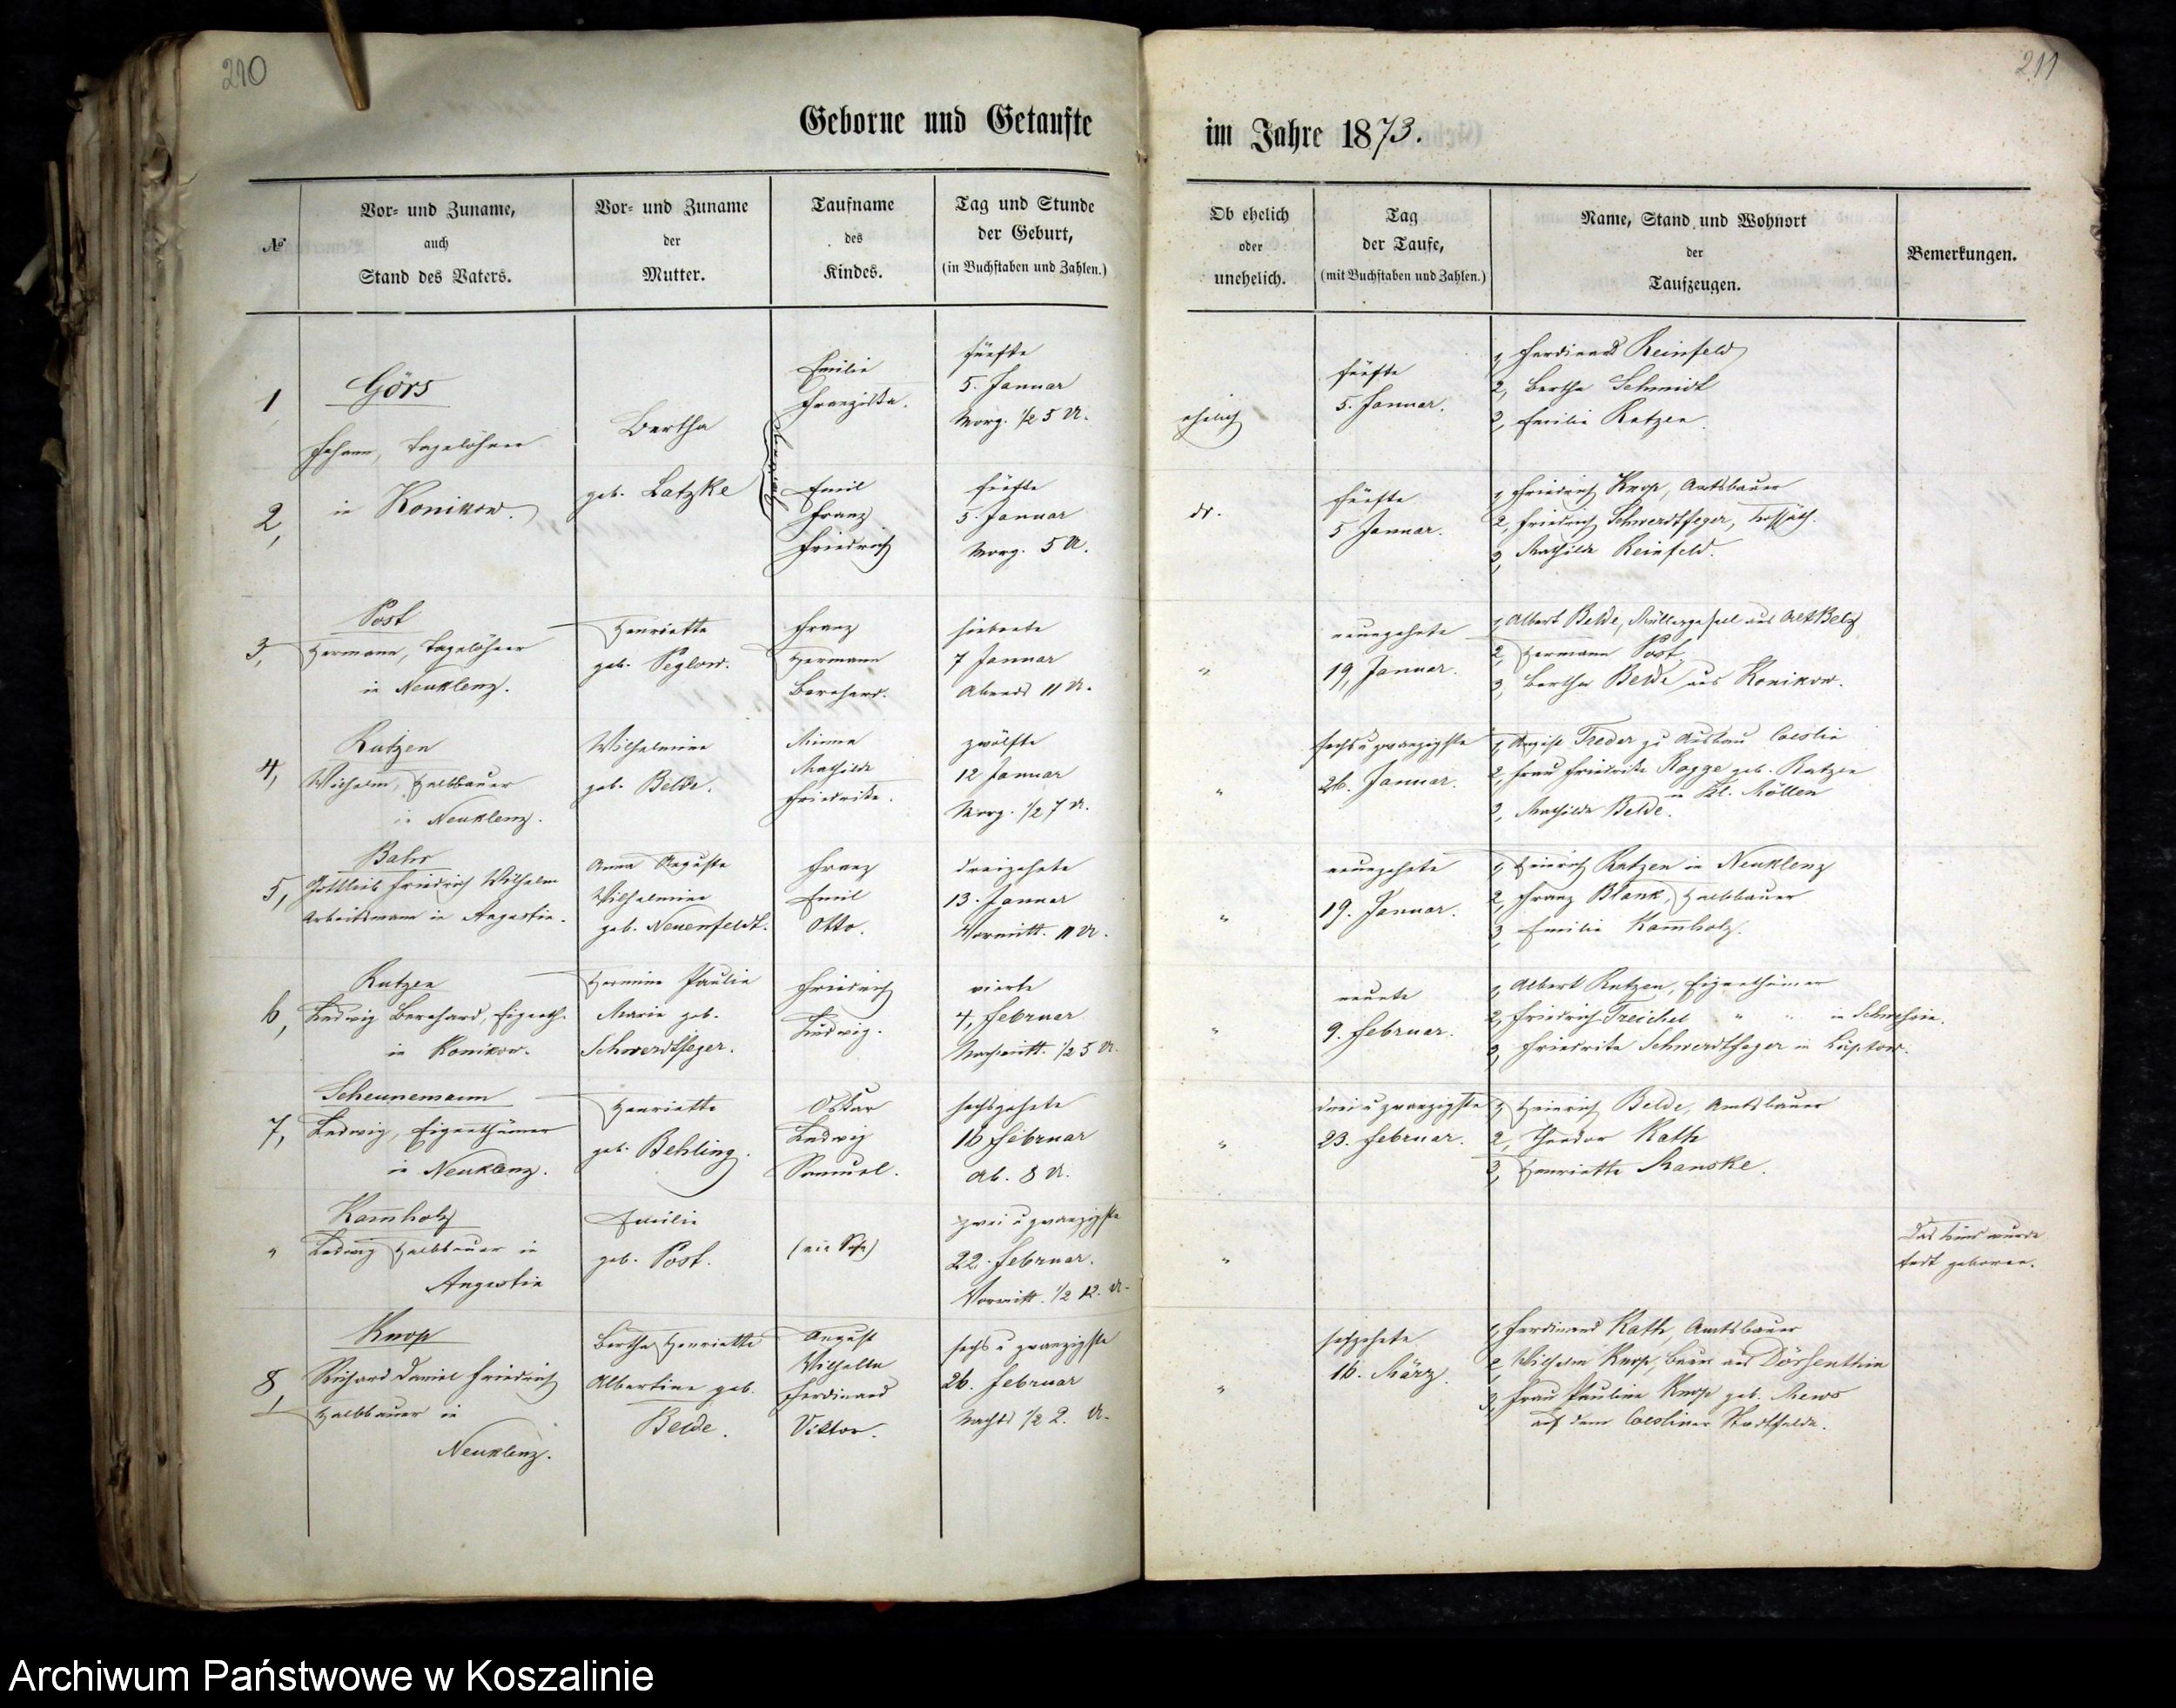 210
211
Geborne und Getaufte
im Jahre 1873.
№
Vor- und Zuname,
auch
Stand des Vaters.
Vor- und Zuname
der
Mutter.
Taufname
des
Kindes.
Tag und Stunde
der Geburt,
(in Buchstaben und Zahlen.)
Ob ehelich
oder
unehelich.
Tag
der Taufe,
(mit Buchstaben und Zahlen.)
Name, Stand und Wohnort
der
Taufzeugen.
Bemerkungen.
1
Görs
Johann, Tagelöhner
in Konikow.
Bertha
geb. Latzke
Emilie
Franziska.
fünfte
5. Januar
Morg. ½ 5 U.
ehelich
fünfte
5. Januar.
1, Ferdinand Reinfeld
2, Bertha Schmidt
3, Emilie Rutzen.
2,
Emil
Franz
Friedrich
fünfte
5. Januar
Morg. 5 U.
do.
fünfte
5 Januar.
1, Friedrich Knop, Amtsbauer
2, Friedrich Schwerdtfeger,
3, Mathilde Reinfeld.
3,
Post
Hermann, Tagelöhner
in Neuklenz.
Henriette
geb. Peglow.
Franz
Hermann
Bernhard.
siebente
7 Januar
Abends 11 U.
"
neunzehnte
19, Januar.
1, Albert Belde, Müllergesell aus Alt Belz
2, Hermann Post
3, Bertha Belde aus Konikow.
4,
Rutzen
Wilhelm, Halbbauer
in Neuklenz.
Wilhelmine
geb. Belde.
Minna
Mathilde
Friedrike.
zwölfte
12 Januar
Morg. ½ 7 U.
"
sechs u zwanzigste
26. Januar.
1, August Treder zu Ausbau Coeslin
2, Frau Friedrike Ragge geb. Rutzen
in Kl. Möllen
3, Mathilde Belde.
5,
Bahr
Gottlieb Friedrich Wilhelm
Arbeitsmann in Augustin.
Anna Auguste
Wilhelmine
geb. Neuenfeldt.
Franz
Emil
Otto.
dreizehnte
13. Januar
Vormitt. 11 U.
"
neunzehnte
19. Januar.
1, Heinrich Rutzen in Neuklenz
2, Franz Blank, Halbbauer
3, Emilie Kamholz.
6,
Rutzen
Ludwig Bernhard, Eigenth.
in Konikow.
Hermine Pauline
Marie geb.
Schwerdtfeger.
Friedrich
Ludwig.
vierte
4, Februar
Nachmitt. ½ 5 U.
"
neunte
9. Februar.
1, Albert Rutzen, Eigenthümer
2, Friedrich Treichel " " in Schwessin.
3, Friedrike Schwerdtfeger in Lüptow.
7,
Scheunemann
Ludwig, Eigenthümer
in Neuklenz.
Henriette
geb. Behling.
Oskar
Ludwig
Samuel.
sechszehnte
16 Februar
Ab. 8 U.
"
drei u zwanzigste
23. Februar.
1, Heinrich Belde, Amtsbauer
2, Theodor Kath
3, Henriette Manske.
"
Kamholz
Ludwig Halbbauer in
Augustin
Emilie
geb. Post.
(ein Sohn)
zwei u zwanzigste
22. Februar.
Vormitt. ½ 12. U.
"
Das Kind wurde
todt geboren.
8,
Knop
Richard Daniel Friedrich
Halbbauer in
Neuklenz.
Bertha Henriette
Albertine geb.
Belde.
August
Wilhelm
Ferdinand
Viktor.
sechs u zwanzigste
26. Februar
Nachts ½ 2. U.
"
sechzehnte
16. März.
1, Ferdinand Kath, Amtsbauer
2, Wilhelm Knop, Bauer aus Dörsenthin
3, Frau Pauline Knop geb. Mews
auf dem Coesliner Stadtfelde.
Archiwum Państwowe w Koszalinie